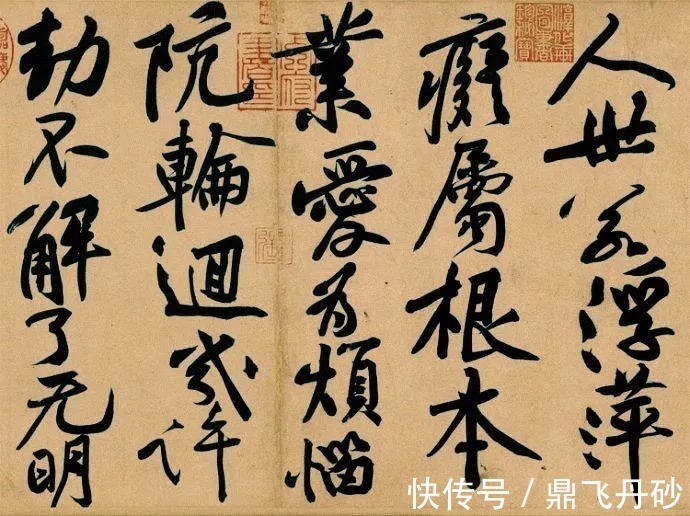 人世若浮萍
癡屬根本
業愛為煩惱
阬輪迴幾許
劫不解了无明
快传号 / 鼎飞丹砂